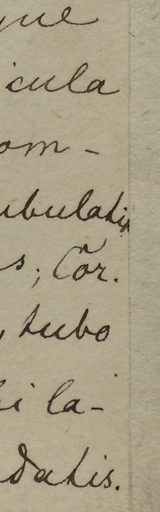 que
icula
om-
ubulatis
s; Cor.
, tubo
i la-
datis.